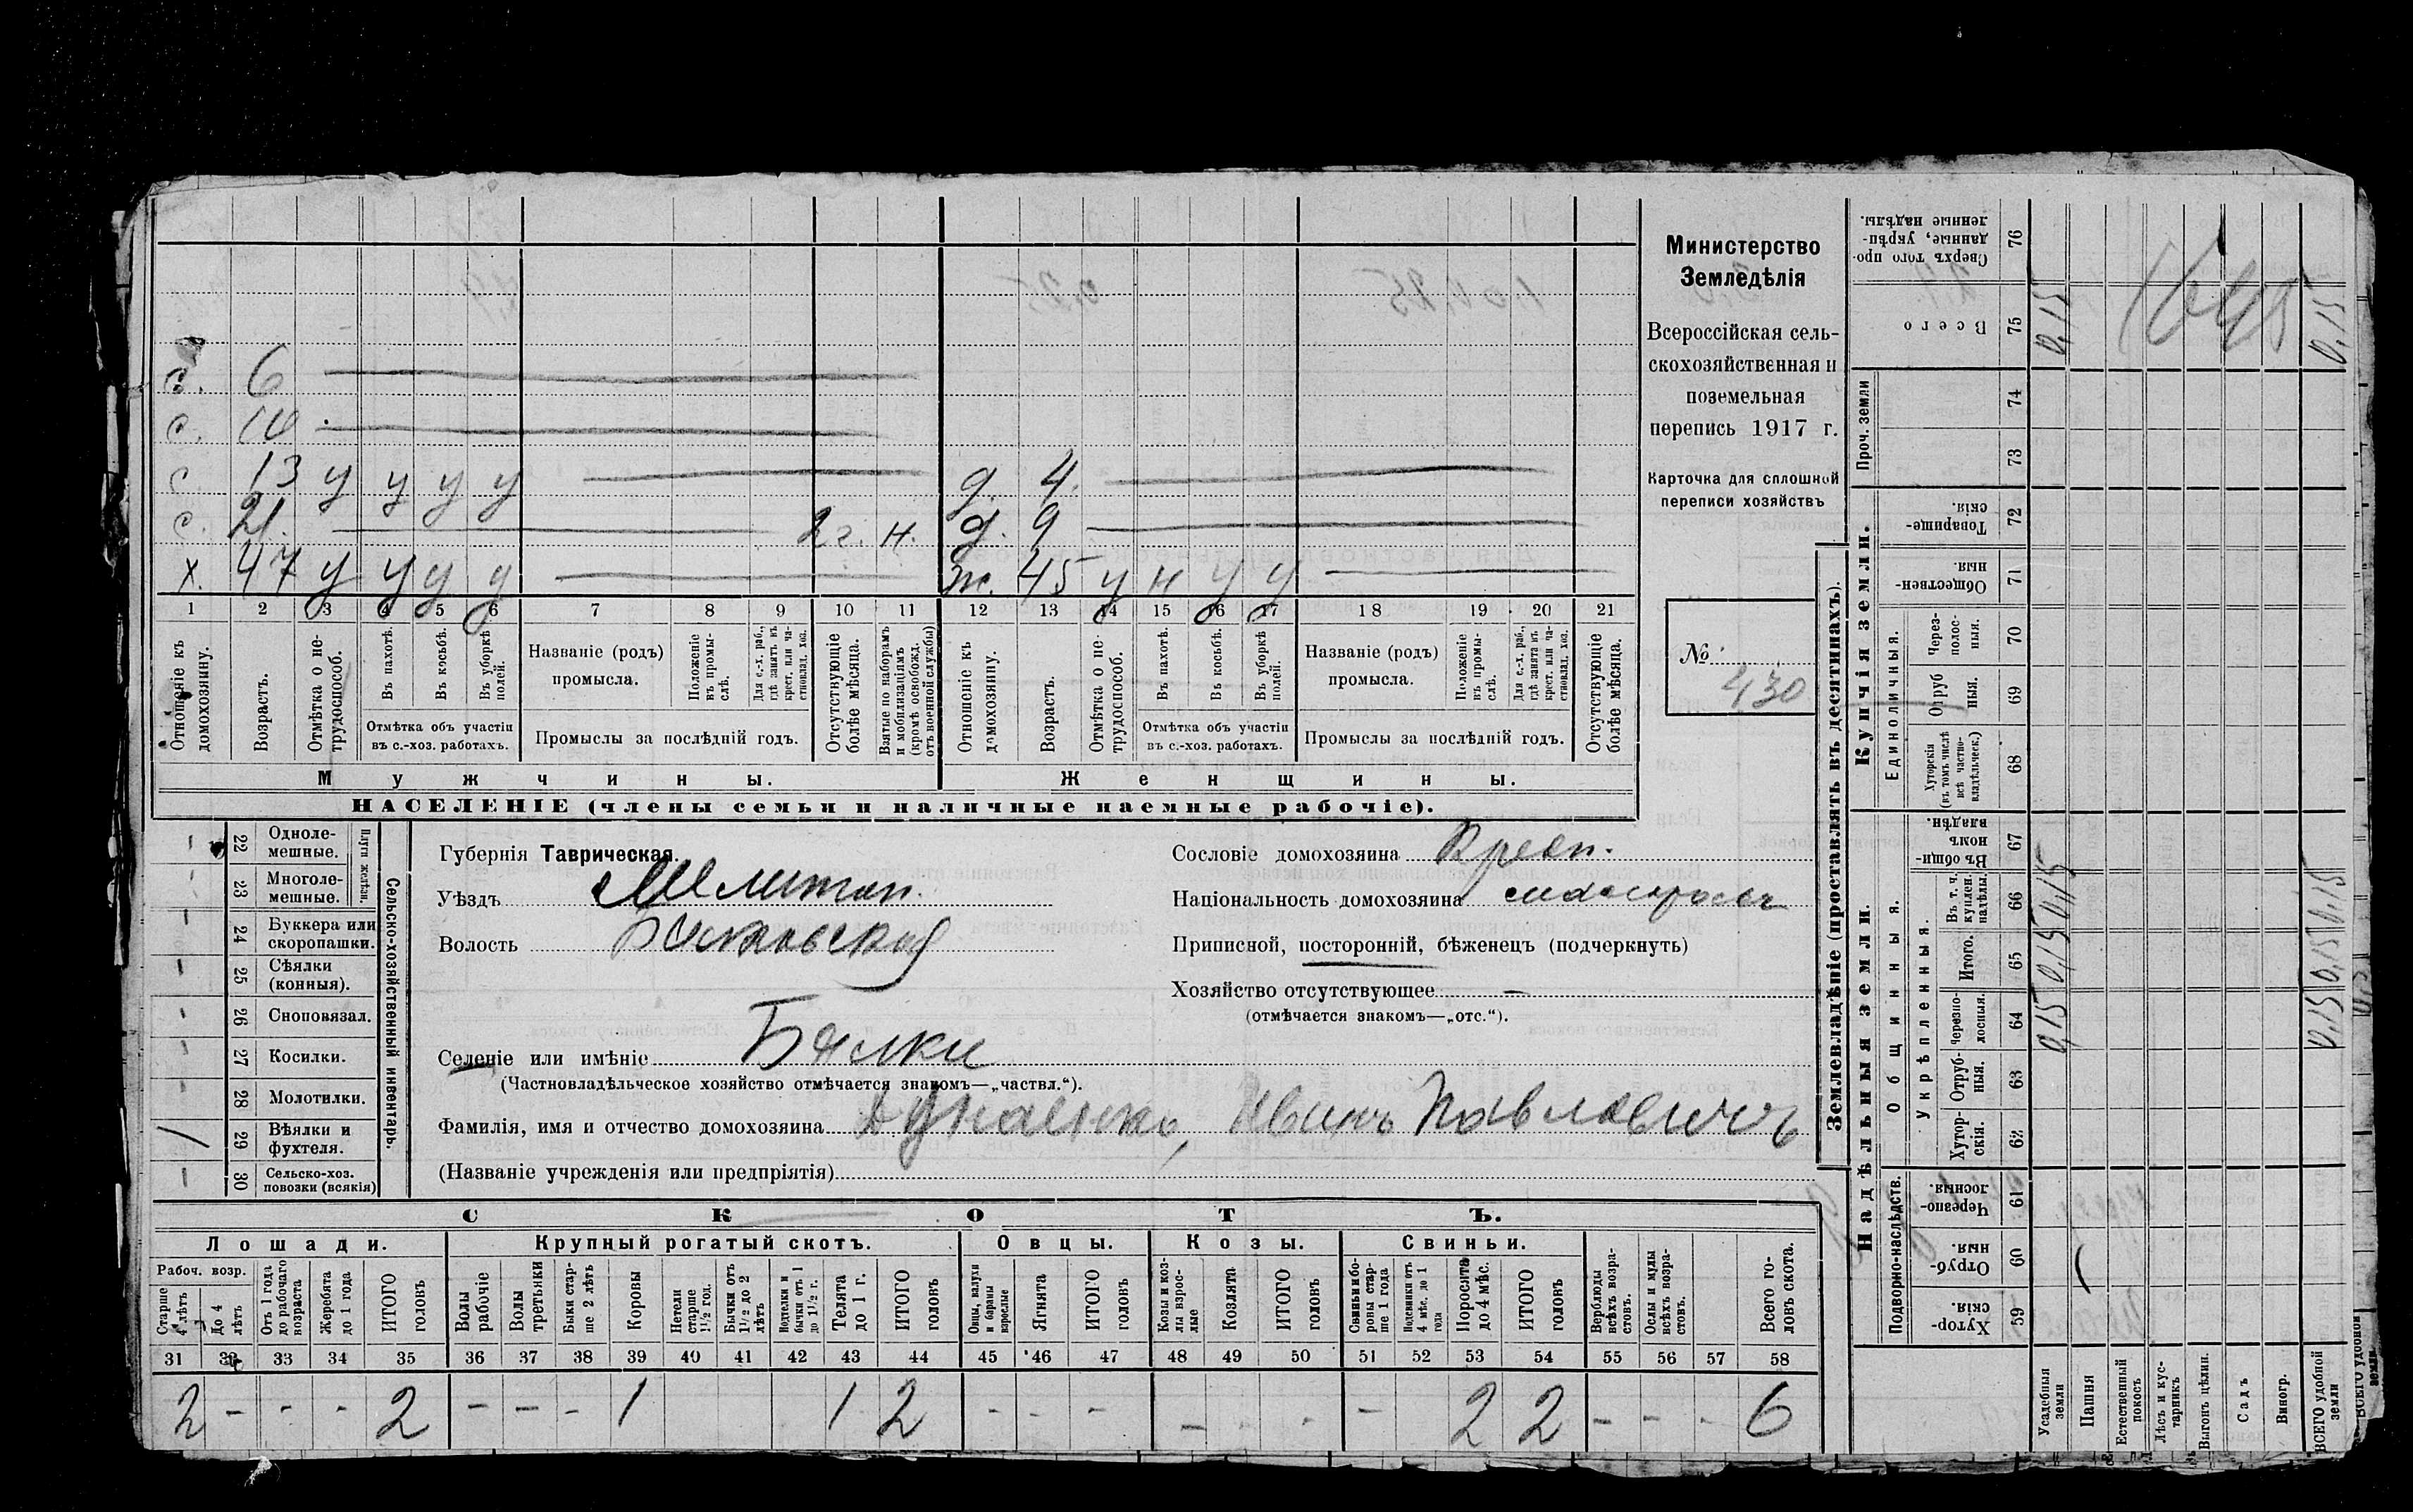 с. 6
с. 10
с. 13 у у у у
д. 4.
с. 21. 2 г. н.
д. 9
х. 47 у у у у
ж. 45 у н у у
1 2 3 4 5 6 7 8 9 10 11 12 13 14 15 16 17 18 19 20 21
Отношеніе къ домохозяину.
Возрастъ.
Отмѣтка о нетрудоспособ.
Въ пахотѣ.
Въ косьбѣ.
Въ уборкѣ полей.
Отмѣтка объ участіи въ с.-хоз. работахъ.
Названіе (родъ) промысла.
Положеніе въ промыслѣ.
Для с.-х. раб., гдѣ занятъ въ крест. или частновлад. хоз.
Промыслы за послѣдній годъ.
Отсутствующіе болѣе мѣсяца.
Взятые по наборамъ и мобилизаціямъ (кромѣ освобожд. отъ военной службы)
Отношеніе къ домохозяину.
Возрастъ.
Отмѣтка о нетрудоспособ.
Въ пахотѣ.
Въ косьбѣ.
Въ уборкѣ полей.
Отмѣтка объ участіи въ с.-хоз. работахъ.
Названіе (родъ) промысла.
Положеніе въ промыслѣ.
Для с.-х. раб., гдѣ занята въ крест. или частновлад. хоз.
Промыслы за послѣдній годъ.
Отсутствующіе болѣе мѣсяца.
Мужчины.
Женщины.
НАСЕЛЕНІЕ (члены семьи и наличные наемные рабочіе).
Министерство
Земледѣлія
Всероссійская сель-
скохозяйственная и
поземельная
перепись 1917 г.
Карточка для сплошной
переписи хозяйствъ
№ 430
22 Одноле-
мешные.
23 Многоле-
мешные.
Плуги желѣзн.
24 Буккера или
скоропашки.
25 Сѣялки
(конныя).
26 Сноповязал.
27 Косилки.
28 Молотилки.
29 Вѣялки и
фухтеля.
30 Сельско-хоз.
повозки (всякія)
Сельско-хозяйственный инвентарь.
Губернія Таврическая.
Уѣздъ Мелитоп.
Волость Бѣлковская
Селеніе или имѣніе Бѣлки
(Частновладѣльческое хозяйство отмѣчается знакомъ—„частвл.“).
Фамилія, имя и отчество домохозяина Иванъ Павловичъ
(Названіе учрежденія или предпріятія)
Сословіе домохозяина Крест.
Національность домохозяина малороссъ
Приписной, посторонній, бѣженецъ (подчеркнуть)
Хозяйство отсутствующее —
(отмѣчается знакомъ—„отс.“).
СКОТЪ.
Лошади. Крупный рогатый скотъ. Овцы. Козы. Свиньи.
Рабоч. возр.
Старше 4 лѣтъ
До 4 лѣтъ
Отъ 1 года до рабочаго возраста
Жеребята до 1 года
ИТОГО головъ
Волы рабочіе
Волы третьяки
Быки старше 2 лѣтъ
Коровы
Нетели старше 1½ год.
Бычки отъ 1½ до 2 лѣтъ
Подтелки и бычки отъ 1 до 1½ г.
Телята до 1 г.
ИТОГО головъ
Овцы, валухи и бараны взрослые
Ягнята
ИТОГО головъ
Козы и козлы взрослые
Козлята
ИТОГО головъ
Свиньи и боровы старше 1 года
Подсвинки отъ 4 мѣс. до 1 года
Поросята до 4 мѣс.
ИТОГО головъ
Верблюды всѣхъ возрастовъ.
Ослы и мулы всѣхъ возрастовъ.
Всего головъ скота.
31 32 33 34 35 36 37 38 39 40 41 42 43 44 45 46 47 48 49 50 51 52 53 54 55 56 57 58
2 - - - 2 - - - 1 1 2 - - - - - - - 2 2 - - - 6
Землевладѣніе (проставлять въ десятинахъ).
Надѣльныя земли.
Купчія земли.
Проч. земли
Подворно-наслѣдств.
Общинныя.
Укрѣпленныя.
Единоличныя.
Хуторскія. 59
Отрубныя. 60
Черезполосныя. 61
Хуторскія. 62
Отрубныя. 63
Черезполосныя. 64
Итого. 65
Въ т. ч. куплен. надѣлы. 66
Въ общинномъ владѣн. 67
Хуторскія (въ томъ числѣ всѣ частновладѣльческ.) 68
Отрубныя. 69
Черезполосныя. 70
Общественныя. 71
Товарищескія. 72
73
74
Всего 75
Сверхъ того проданные, укрѣпленные надѣлы. 76
Усадебныя земли 0,15 0,15 0,15 0,15
Пашня
Естественный покосъ
Лѣсъ и кустарникъ
Выгонъ цѣлин.
Садъ
Виногр.
ВСЕГО удобной земли 0,15 0,15 0,15 0,15
ВСЕГО удобной земли